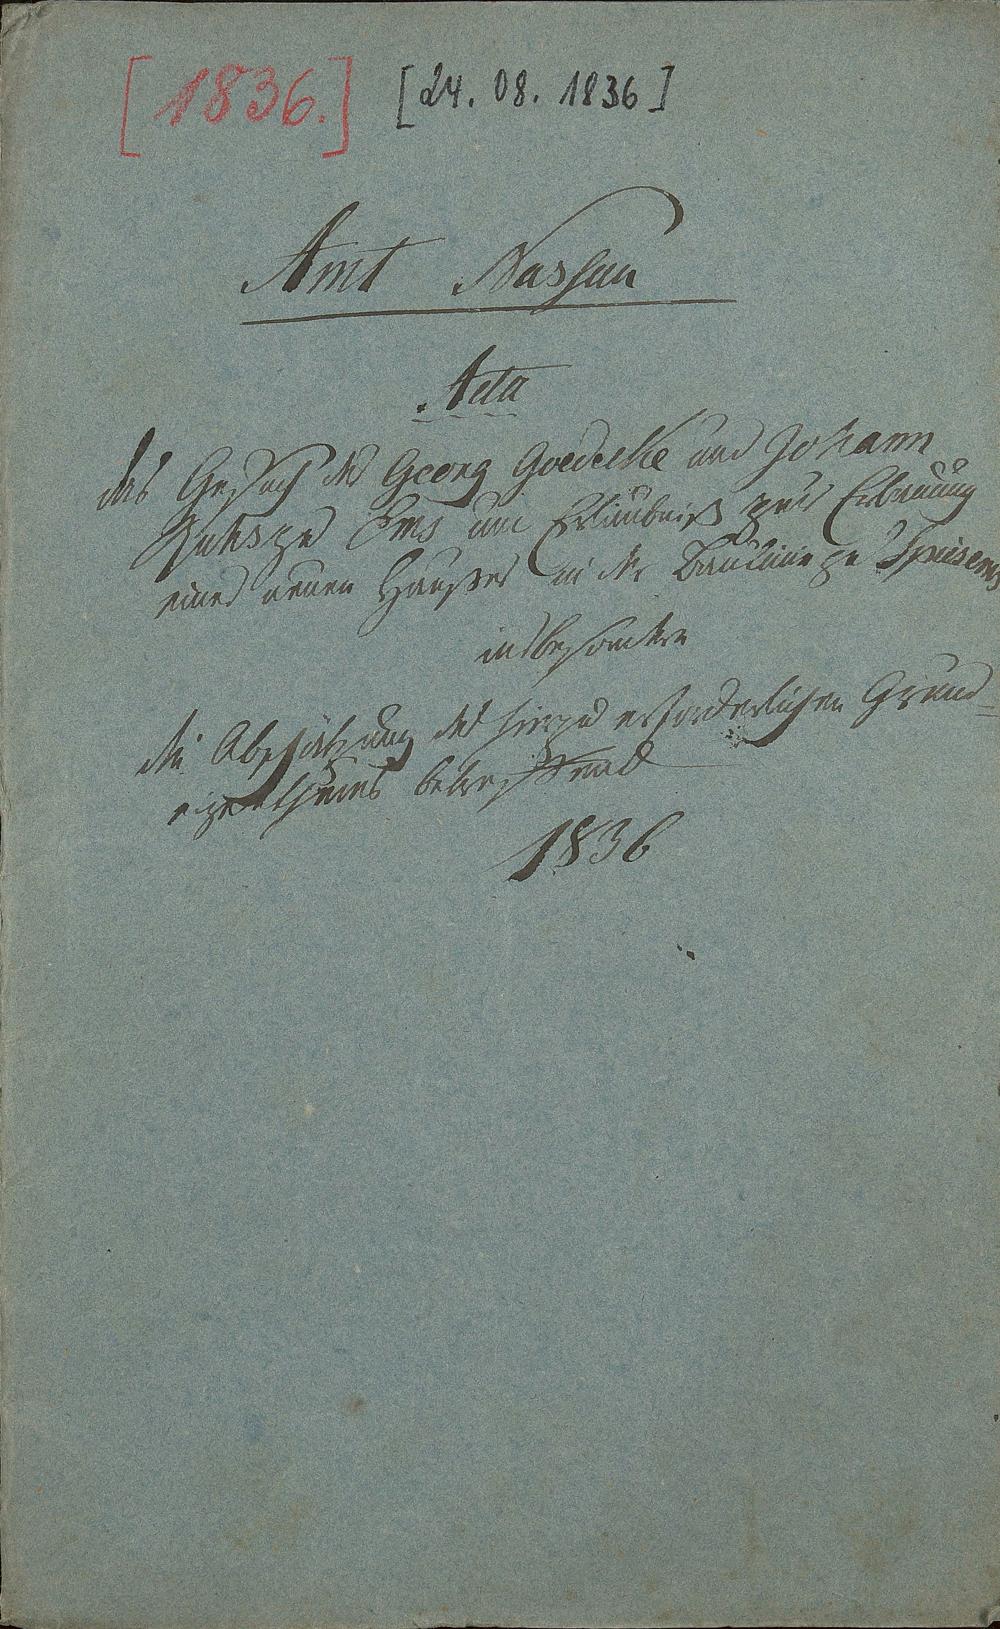 [1836.] [24. 08. 1836]
Amt Nassau
Acta
das Gesuch des Georg Goedecke und Johann
zu Ems um Erlaubniß zur Erbauung
eines neuen Haußes in der Baulinie zu Spiesems
insbesondere
die Abschätzung des hierzu erforderlichen Grund=
eigenthums betreffend
1836